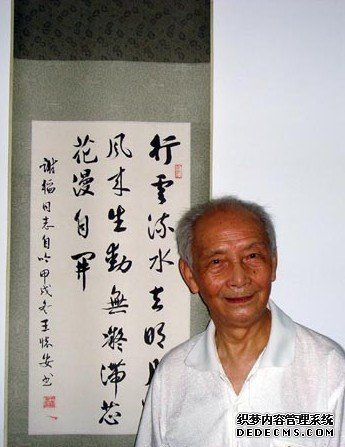 行雲流水去明月
風来生動無凝滞芯
花漫自開
謝韜同志自吟甲戌冬王懷安书
织梦内容管理系统
DEDECMS.COM